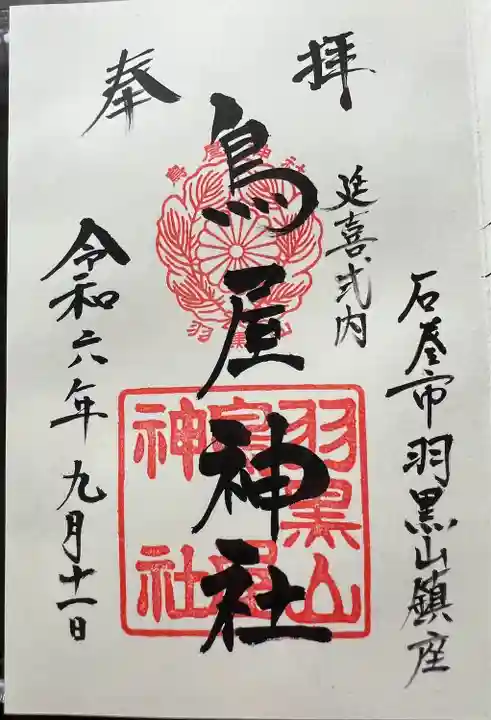 奉拝
石巻市羽黒山鎮座
延喜式内
鳥屋神社
令和六年九月十一日
羽黒山
鳥屋
神社